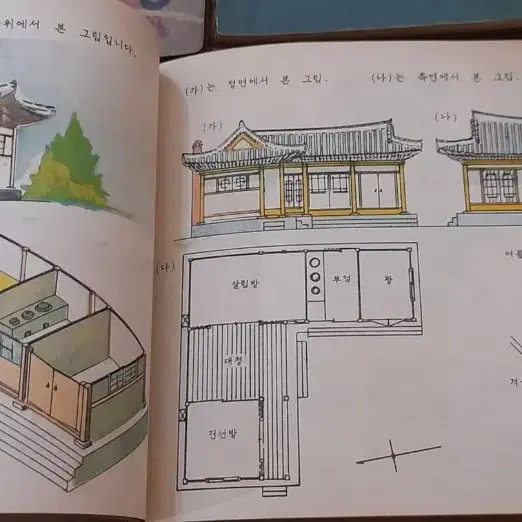 위에서 본 그림입니다.
(가)는 정면에서 본 그림.
(나)는 측면에서 본 그림.
(가)
(나)
(다)
살림방
부엌
광
대청
건넌방
여름
겨